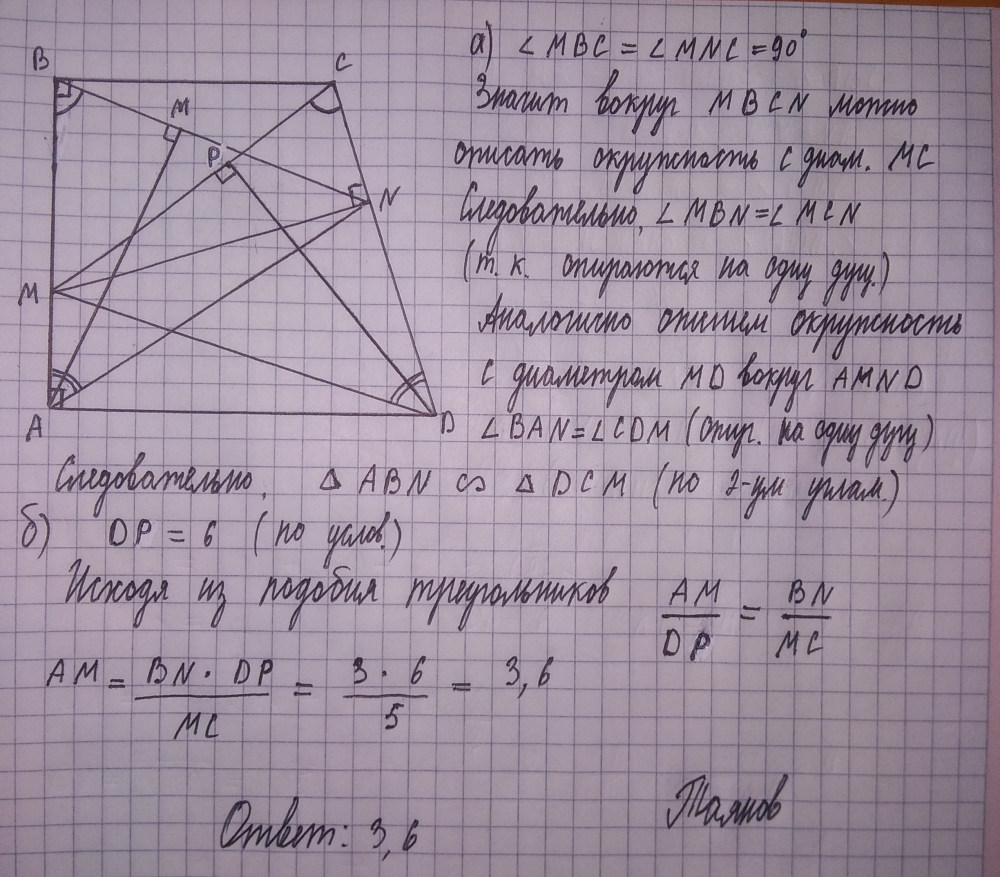 B
C
M
P
N
M
A
D
а) ∠ MBC = ∠ MNC = 90°
Значит вокруг MBCN можно
описать окружность с диам. MC
Следовательно, ∠ MBN = ∠ MCN
(т. к. опираются на одну дугу.)
Аналогично опишем окружность
с диаметром MD вокруг AMND
∠ BAN = ∠ CDM (опир. на одну дугу)
Следовательно, △ ABN ∽ △ DCM (по 2-ум углам.)
б) DP = 6 (по услов.)
Исходя из подобия треугольников AM/DP = BN/MC
AM = BN · DP/MC = 3 · 6/5 = 3,6
Ответ: 3,6